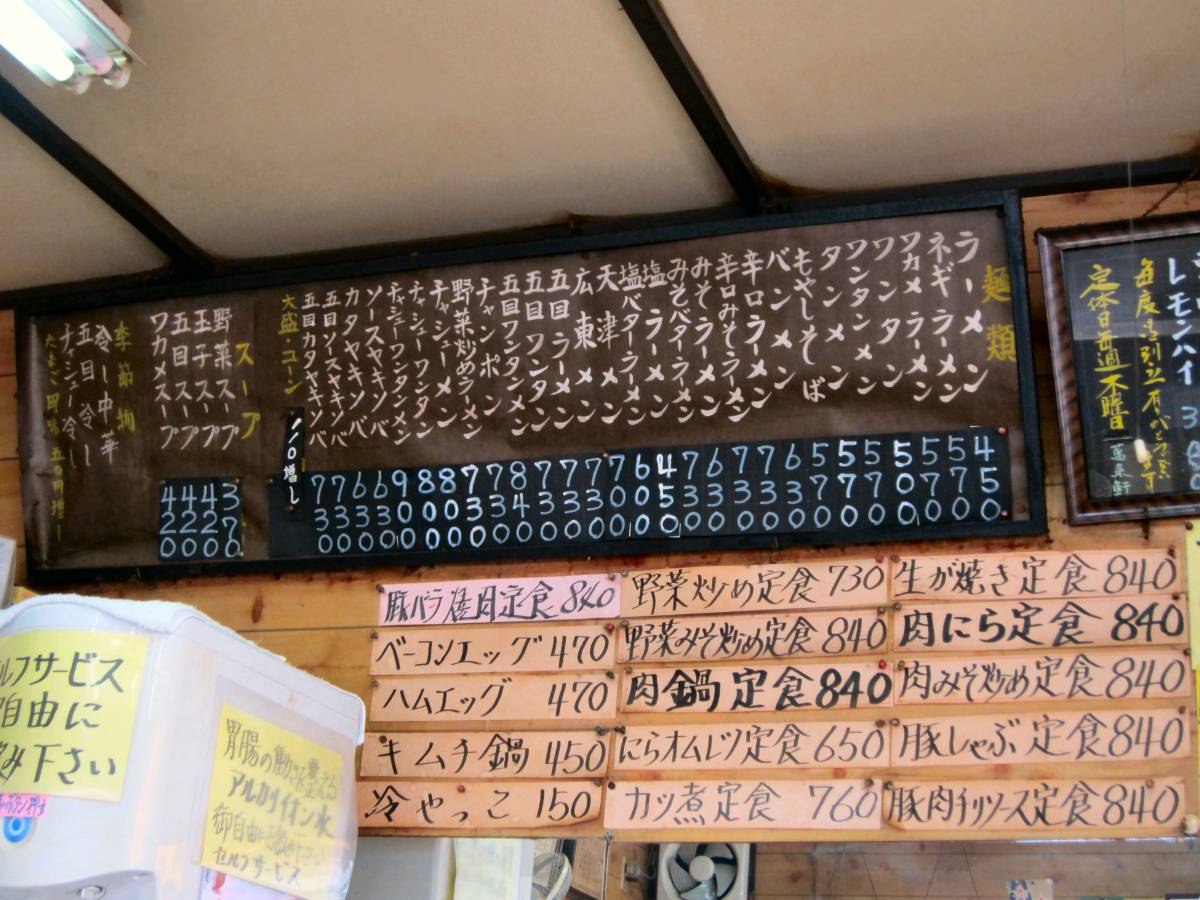 麺類
ラーメン 450
ネギラーメン 570
ワカメラーメン 570
ワンタン 500
ワンタンメン 570
タンメン 570
もやしそば 570
バンメン 630
辛口ラーメン 730
辛口みそラーメン 730
みそラーメン 630
みそバターラーメン 730
塩ラーメン 450
塩バターラーメン 600
天津メン 700
広東メン 730
五目ラーメン 730
五目ワンタン 730
五目ワンタンメン 840
チャンポン 730
野菜炒めラーメン 730
チャシューメン 800
チャシューワンタン 800
チャシューワンタンメン 900
ソースヤキソバ 630
カタヤキソバ 630
五目ソースヤキソバ 730
五目カタヤキソバ 730
大盛・コーン 110増し
スープ
野菜スープ 370
玉子スープ 420
五目スープ 420
ワカメスープ 420
季節物
冷し中華
五目冷し
チャシュー冷し
レモンハイ
毎度お引立有がとう
定休日毎週木曜
萬来軒
豚バラ焼肉定食 840
ベーコンエッグ 470
ハムエッグ 470
キムチ鍋 450
冷やっこ 150
野菜炒め定食 730
野菜みそ炒め定食 840
肉鍋定食 840
にらオムレツ定食 650
カツ煮定食 760
生が焼き定食 840
肉にら定食 840
肉みそ炒め定食 840
豚しゃぶ定食 840
豚肉チリソース定食 840
ルフサービス
自由に
み下さい
胃腸の働きを整える
アルカリイオン水
セルフサービス